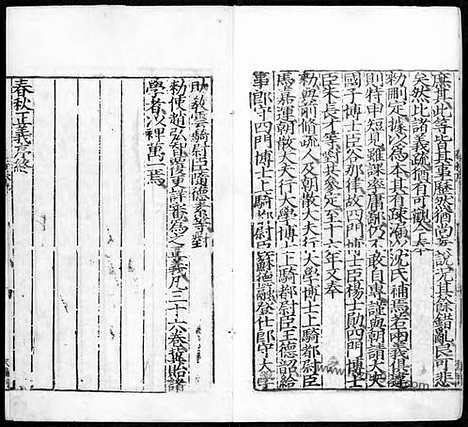 廢也此等皆其事歷然猶尚妄說況其餘錯亂良可悲
矣然比諸義疏猶有可觀今奉
勑刪定據以為本其有疎漏以沈氏補焉若兩義俱違
則特申短見雖課率庸鄙仍不敢自專謹與朝請大夫
國子博士臣谷那律故四門博士臣楊士勛四門博士
臣朱長才等對共參定至十六年又奉
勑與前脩疏人及朝散大夫行大學博士上騎都尉臣
馬嘉運朝散大夫行大學博士上騎都尉臣王德韶給
事郎守四門博士上騎都尉臣蘇德融登仕郎守大學
助教雲騎尉臣隨德素等對
勑使趙弘智覆更詳審為之正義凡三十六卷冀貽諸
學者以裨萬一焉
春秋正義序終